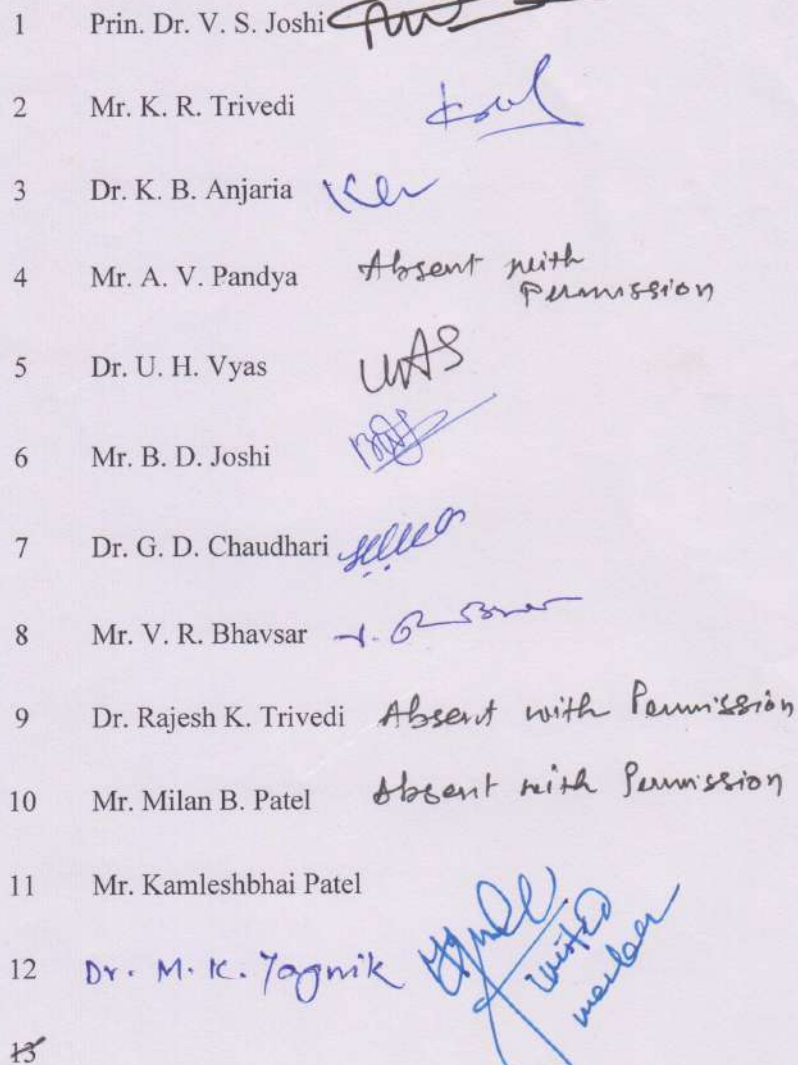 1 Prin. Dr. V. S. Joshi
2 Mr. K. R. Trivedi
3 Dr. K. B. Anjaria
4 Mr. A. V. Pandya Absent with
Permission
5 Dr. U. H. Vyas
6 Mr. B. D. Joshi
7 Dr. G. D. Chaudhari
8 Mr. V. R. Bhavsar
9 Dr. Rajesh K. Trivedi Absent with Permission
10 Mr. Milan B. Patel Absent with Permission
11 Mr. Kamleshbhai Patel
12 Dr. M. K. Yagnik
invited
member
13